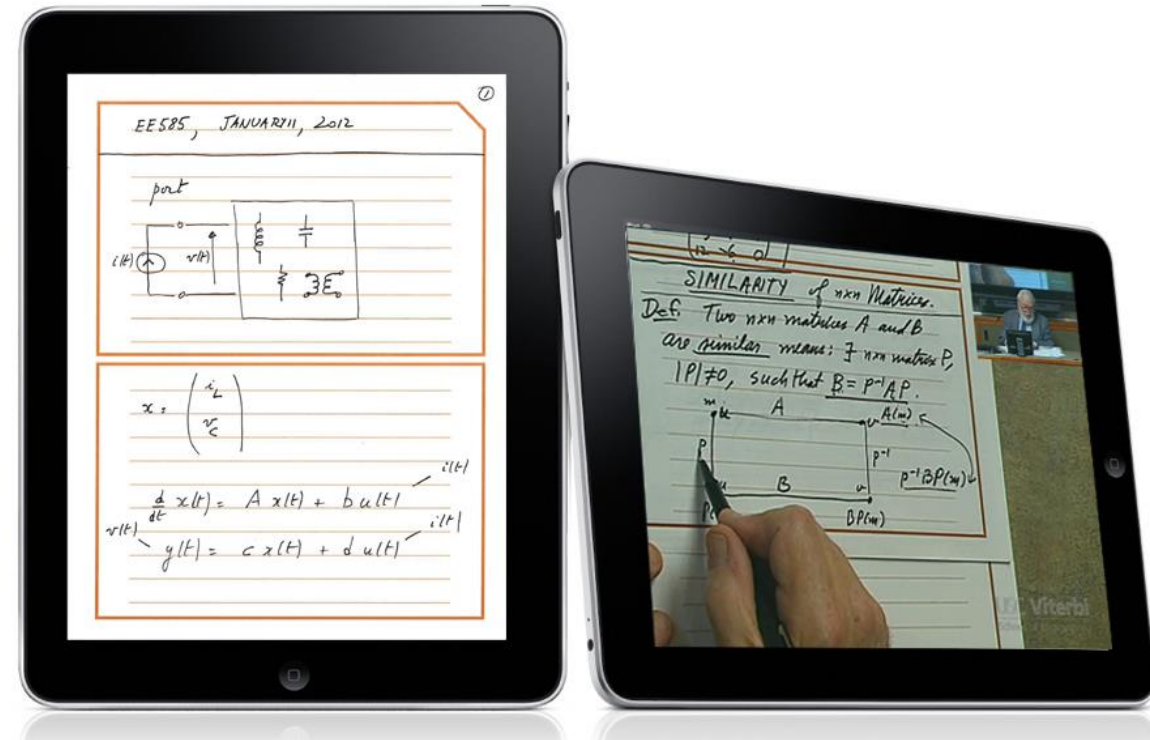 ①
EE585, JANUARY 11, 2012
port
i(t)
v(t)
x = ( i_L
v_C )
d/dt x(t) = A x(t) + b u(t)
i(t)
v(t)
y(t) = c x(t) + d u(t)
i(t)
12 -6 0
SIMILARITY of n×n Matrices.
Def. Two n×n matrices A and B
are similar means: ∃ n×n matrix P,
|P|≠0, such that B = P⁻¹AP.
m A A(m)
P P⁻¹ P⁻¹BP(m)
B
BP(m)
Viterbi